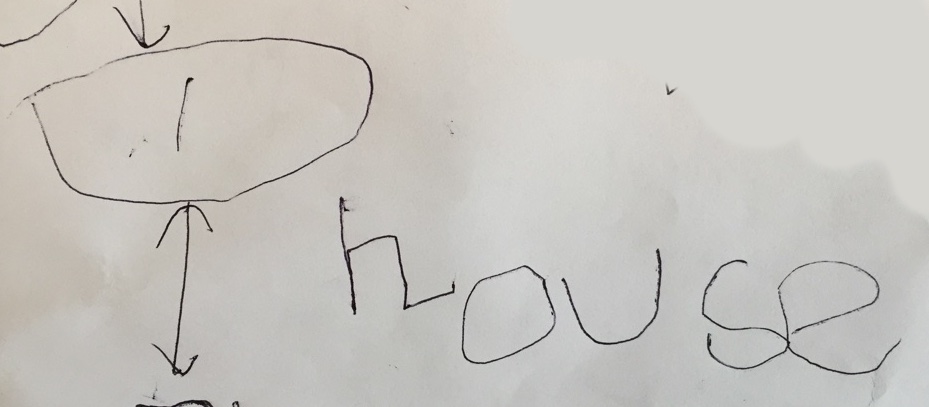 1
house